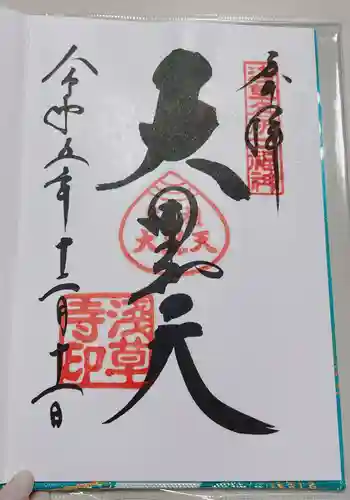 奉拝
浅草名所七福神
大黒天
浅草寺印
令和五年十二月十一日